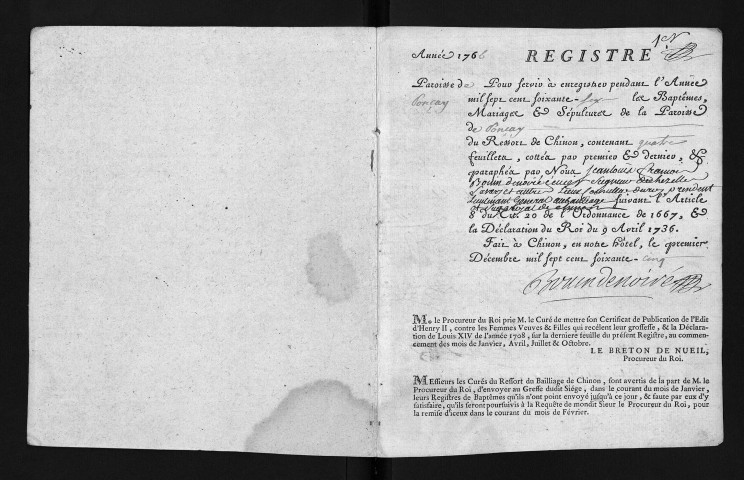 Année 1766
REGISTRE
1.er
Paroisse de
Poncay
Pour servir à enregistrer pendant l'Année
mil sept cent soixante-six les Baptêmes,
Mariages & Sépultures de la Paroisse
de Poncay
du Ressort de Chinon, contenant quatre
feuillets, cottés par premier & dernier, &
paraphés par Nous Jean louis francois
Bouin denoiré Seigneur
et autres Lieux Conseiller du roy president
Lieutenant General au bailliage suivant l'Article
8 du Tit. 20 de l'Ordonnance de 1667, &
la Déclaration du Roi du 9 Avril 1736.
Fait à Chinon, en notre hôtel, le premier
Décembre mil sept cent soixante-cinq
Bouin denoiré
M. le Procureur du Roi prie M. le Curé de mettre son Certificat de Publication de l'Edit
d'Henry II, contre les Femmes Veuves & Filles qui recélent leur grossesse, & la Déclara-
tion de Louis XIV de l'année 1708, sur la derniere feuille du présent Registre, au commen-
cement des mois de Janvier, Avril, Juillet & Octobre.
LE BRETON DE NUEIL,
Procureur du Roi.
MEssieurs les Curés du Ressort du Bailliage de Chinon, sont avertis de la part de M. le
Procureur du Roi, d'envoyer au Greffe dudit Siége, dans le courant du mois de Janvier,
leurs Registres de Baptêmes qu'ils n'ont point envoyé jusqu'à ce jour, & faute par eux d'y
satisfaire, qu'ils seront poursuivis à la Requête de mondit Sieur le Procureur du Roi, pour
la remise d'iceux dans le courant du mois de Février.